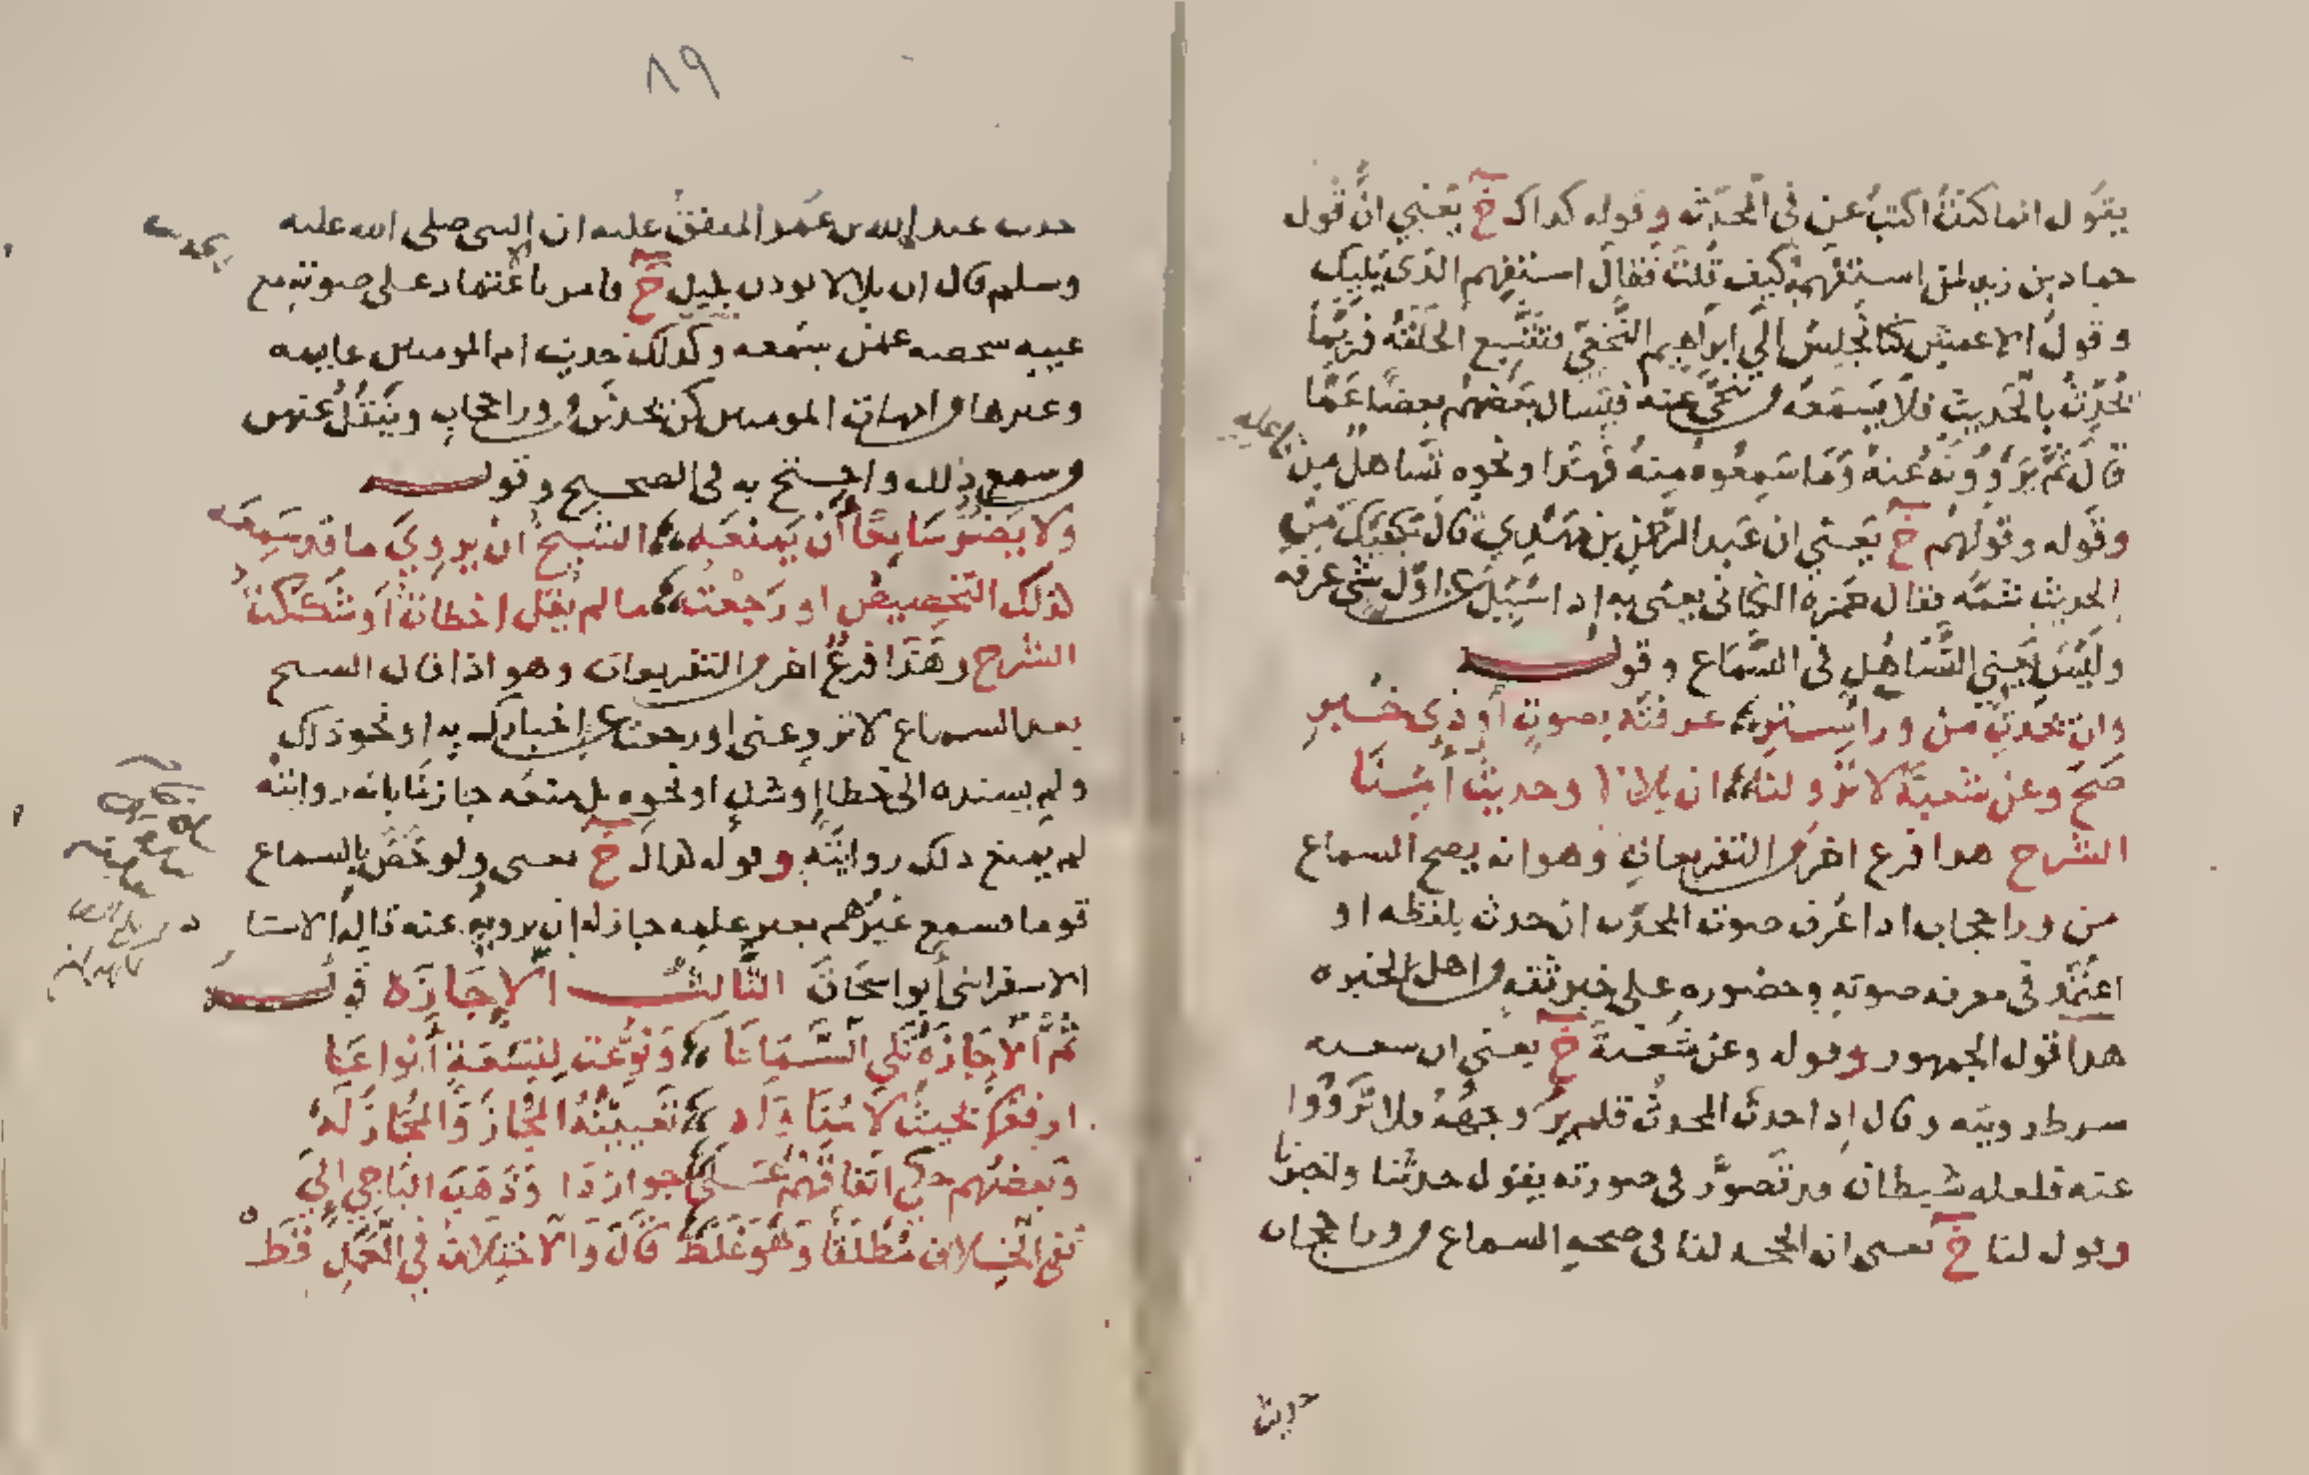 يقول انما كنت اكتب عن في المحدثه وقوله كداك خ يعني ان قول
حماد بن زيد لمن استفهمه كيف قلت فقال استفهم الذي يليك
وقول الاعمش كنا نجلس الي ابراهيم النخعي فتتسع الحلقه فربما
يحدث بالحديث فلا يسمعه من تنحى عنه فيسال بعضهم بعضا عما
قال ثم يروونه عنه وما سمعوه منه فهذا ونحوه تساهل من
فاعليه
وقوله وقولهم خ يعني ان عبد الرحمن بن مهدي قال يكفيك من
الحديث شمه فقال حمزه الكناني يعني به اذا سيل عن اول شي عرفه
وليس يعني التساهل في السماع وقول
وان يحدث من ورا ستر عرفته بصوت أو ذي خبر
صح وعن شعبة لا ترو لنا ان بلالا وحديث أمنا
الشرح هدا فرع اخر من التفريعات وهو انه يصح السماع
من ورا حجاب ادا عرف صوت المحدث ان حدث بلفظه او
اعتمد في معرفه صوته وحضوره على خبر ثقه من اهل الخبره
هدا قول الجمهور وقوله وعن شعبة خ يعني ان سعبه
سرط رويته وقال اذا حدث المحدث فلم ير وجهه فلا ترووا
عنه فلعله شيطان قد تصور في صورته يقول حدثنا واخبرنا
وقول لنا خ يعني ان الحجه لنا في صحه السماع من ورا حجاب
حديث
٨٩
حديث عبد الله بن عمر المتفق عليه ان النبي صلى الله عليه
وسلم قال ان بلالا يودن بليل خ فامر باعتماد على صوته مع
غيبه سخصه عمن يسمعه وكذلك حديث ام المومنين عايشه
وغيرها من امهات المومنين كن يحدثن من ورا حجاب وينقل عنهن
من سمع ذلك واحتج به في الصحيح وقول
ولا يضر سامعا أن يمنعه الشيخ ان يروي ما قد سمعه
كذلك التخصيص او رجعت ما لم يقل اخطات او شككت
الشرح وهذا فرع اخر من التفريعات وهو اذا قال السيخ
بعد السماع لا ترو عني او رجعت عن اخبارك به او نحو ذلك
ولم يسنده الى خطا او شك او نحوه بل منعه جازما بانه روايته
لم يمنع ذلك روايته وقوله كداك خ يعني ولو خص بالسماع
قوما فسمع غيرهم بغير علمه جاز له ان يرويه عنه قاله الاستاد
الاسفراىني أبو اسحاق الثالث الاجازة قولـ
ثم الاجازة تلي السماعا ونوعت لتسعة أنواعا
ارفعها بحيث لا مناوله تعيينه المجاز والمجاز له
وبعضهم حكى اتفاقهم على جواز ذا وذهب الباجي الي
نفي الخلاف مطلقا وهو غلط قال والاختلاف في العمل فقط